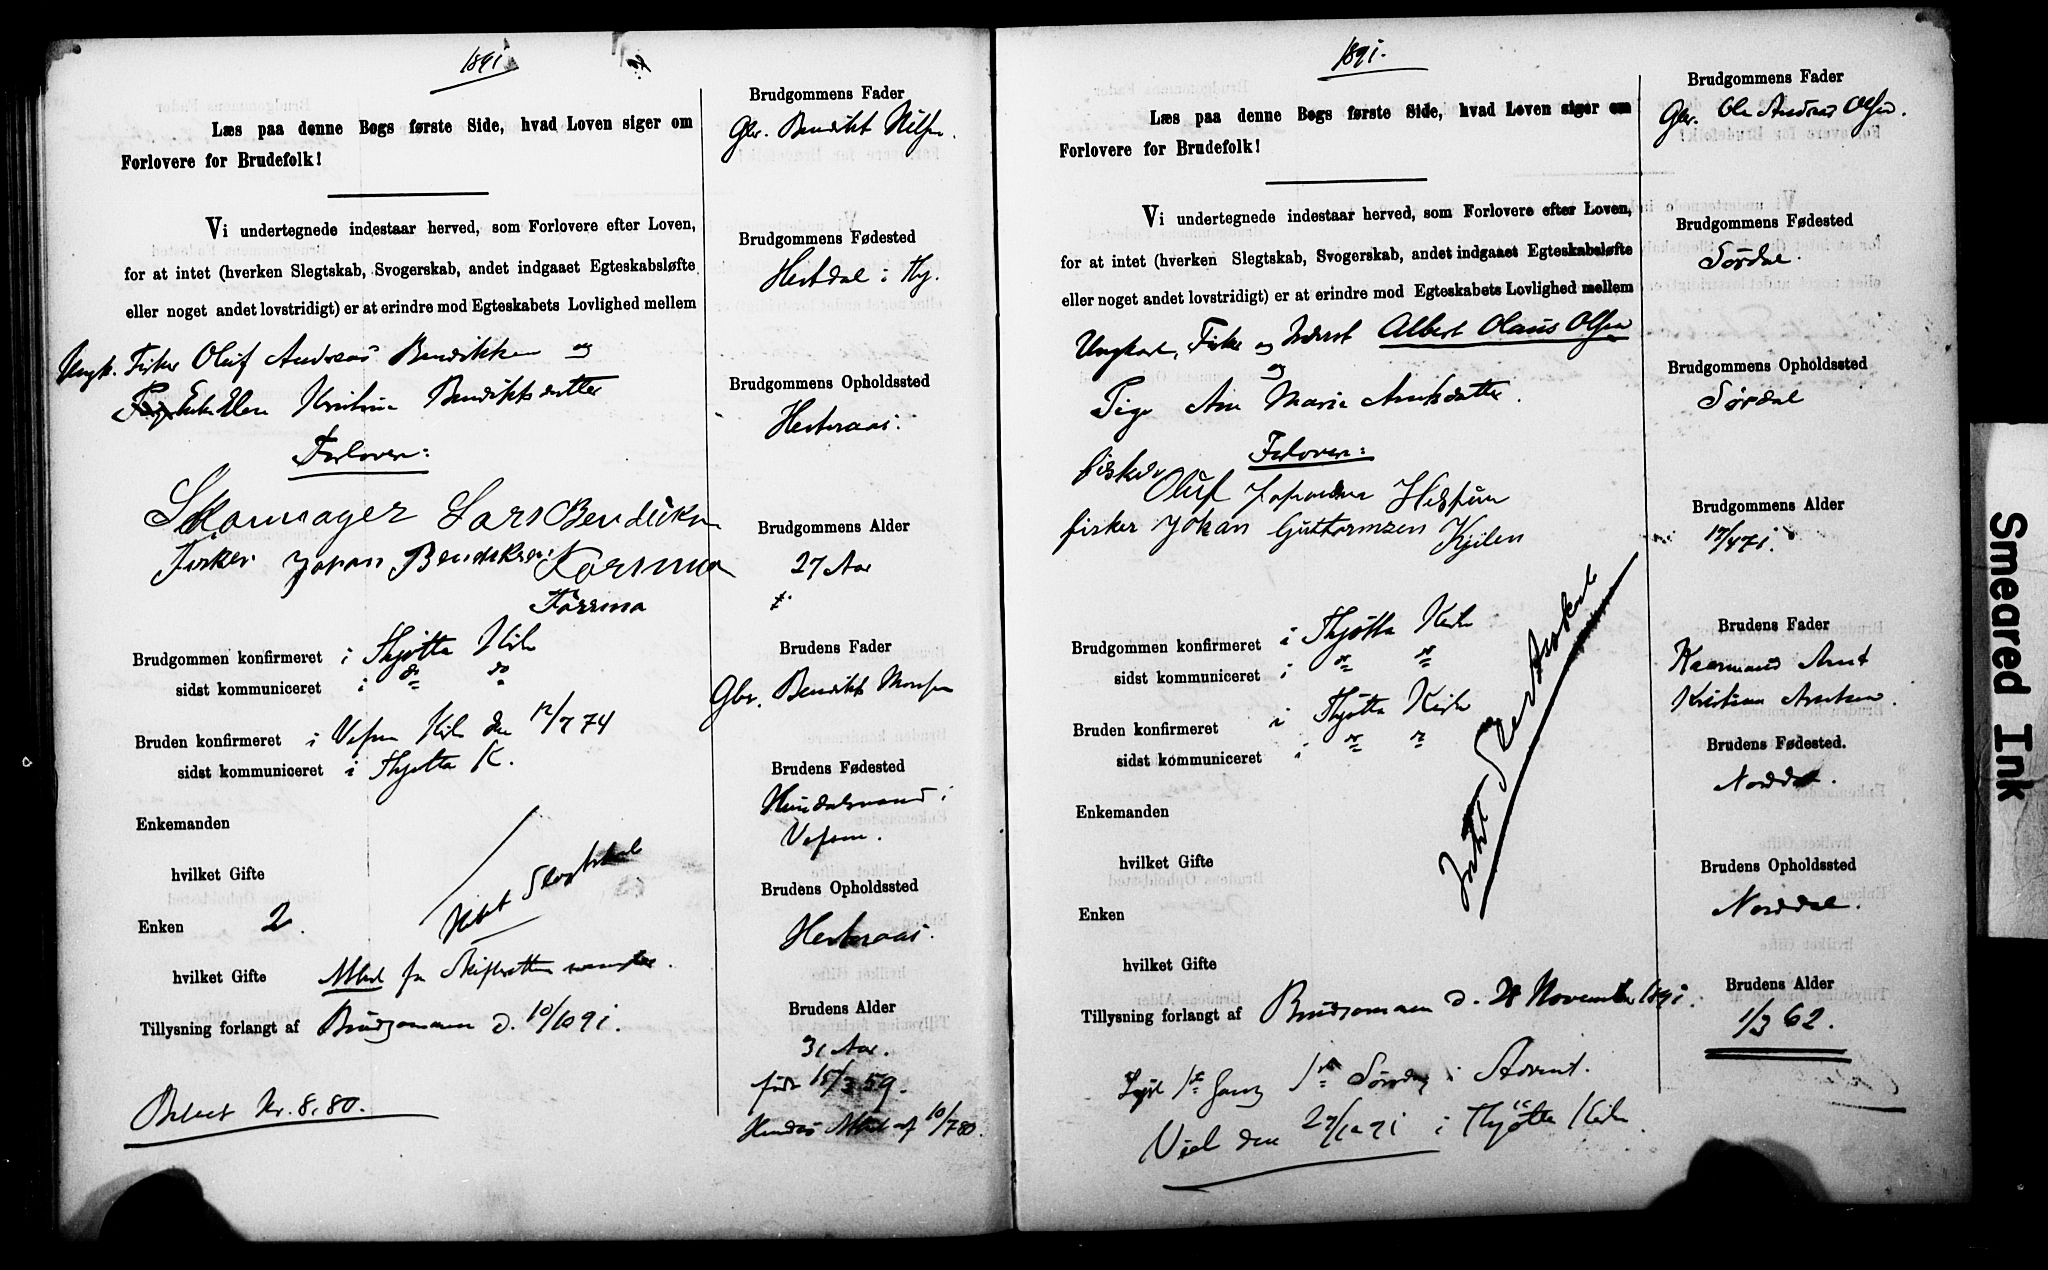 1891
Læs paa denne Bogs første Side, hvad Loven siger om
Forlovere for Brudefolk!
Vi undertegnede indestaar herved, som Forlovere efter Loven,
for at intet (hverken Slegtskab, Svogerskab, andet indgaaet Egteskabsløfte
eller noget andet lovstridigt) er at erindre mod Egteskabets Lovlighed mellem
Ungk. Fisker Oluf Andreas Bendiksen og
Enke Elen Kristina Bendiktsdatter
Forlovere:
Skomager Lars Bendiksen
Fisker Johan Bendiksen Forsmo
Forsmo
Brudgommen konfirmeret i Thjøtta Kirke
sidst kommuniceret i do do
Bruden konfirmeret i Vefsen Kirke den 12/7 74
sidst kommuniceret i Thjøtta K.
Enkemanden
hvilket Gifte
Intet Slegtskab
Enken 2.
hvilket Gifte Attest fra Skifteretten
Tillysning forlangt af Brudgommen d. 10/10 91.
Betalt Kr. 8,80.
Brudgommens Fader
Gbr. Bendikt Nilsen.
Brudgommens Fødested
Hestdal i Thj.
Brudgommens Opholdssted
Hesteraas.
Brudgommens Alder
27 Aar
Brudens Fader
Gbr. Bendikt Monsen
Brudens Fødested
Hundalsvand i
Vefsen.
Brudens Opholdssted
Hesteraas.
Brudens Alder
31 Aar.
født 15/3 59.
Hendes Attest af 10/7 80.
1891.
Læs paa denne Bogs første Side, hvad Loven siger om
Forlovere for Brudefolk!
Vi undertegnede indestaar herved, som Forlovere efter Loven,
for at intet (hverken Slegtskab, Svogerskab, andet indgaaet Egteskabsløfte
eller noget andet lovstridigt) er at erindre mod Egteskabets Lovlighed mellem
Ungkar, Fisker og Inderst Albert Olaus Olsen
og
Pige Ane Marie Arntsdatter.
Forlovere:
fisker Oluf Johansen
fisker Johan Guttormsen Kjilen
Brudgommen konfirmeret i Thjøtta Kirke
sidst kommuniceret i " "
Bruden konfirmeret i Thjøtta Kirke
sidst kommuniceret i " "
Enkemanden
hvilket Gifte
Intet Slegtskab
Enken
hvilket Gifte
Tillysning forlangt af Brudgommen d. 28 November 1891.
Lyst 1ste Gang 1ste Søndag i Advent.
Viet den 27/12 91 i Thjøtta Kirke
Brudgommens Fader
Gbr. Ole Andreas Olsen.
Brudgommens Fødested
Sørdal.
Brudgommens Opholdssted
Sørdal
Brudgommens Alder
17/4 71.
Brudens Fader
Kaarmand Arnt
Kristian Arntsen.
Brudens Fødested.
Norddal.
Brudens Opholdssted
Norddal.
Brudens Alder
1/3 62.
Smeared Ink